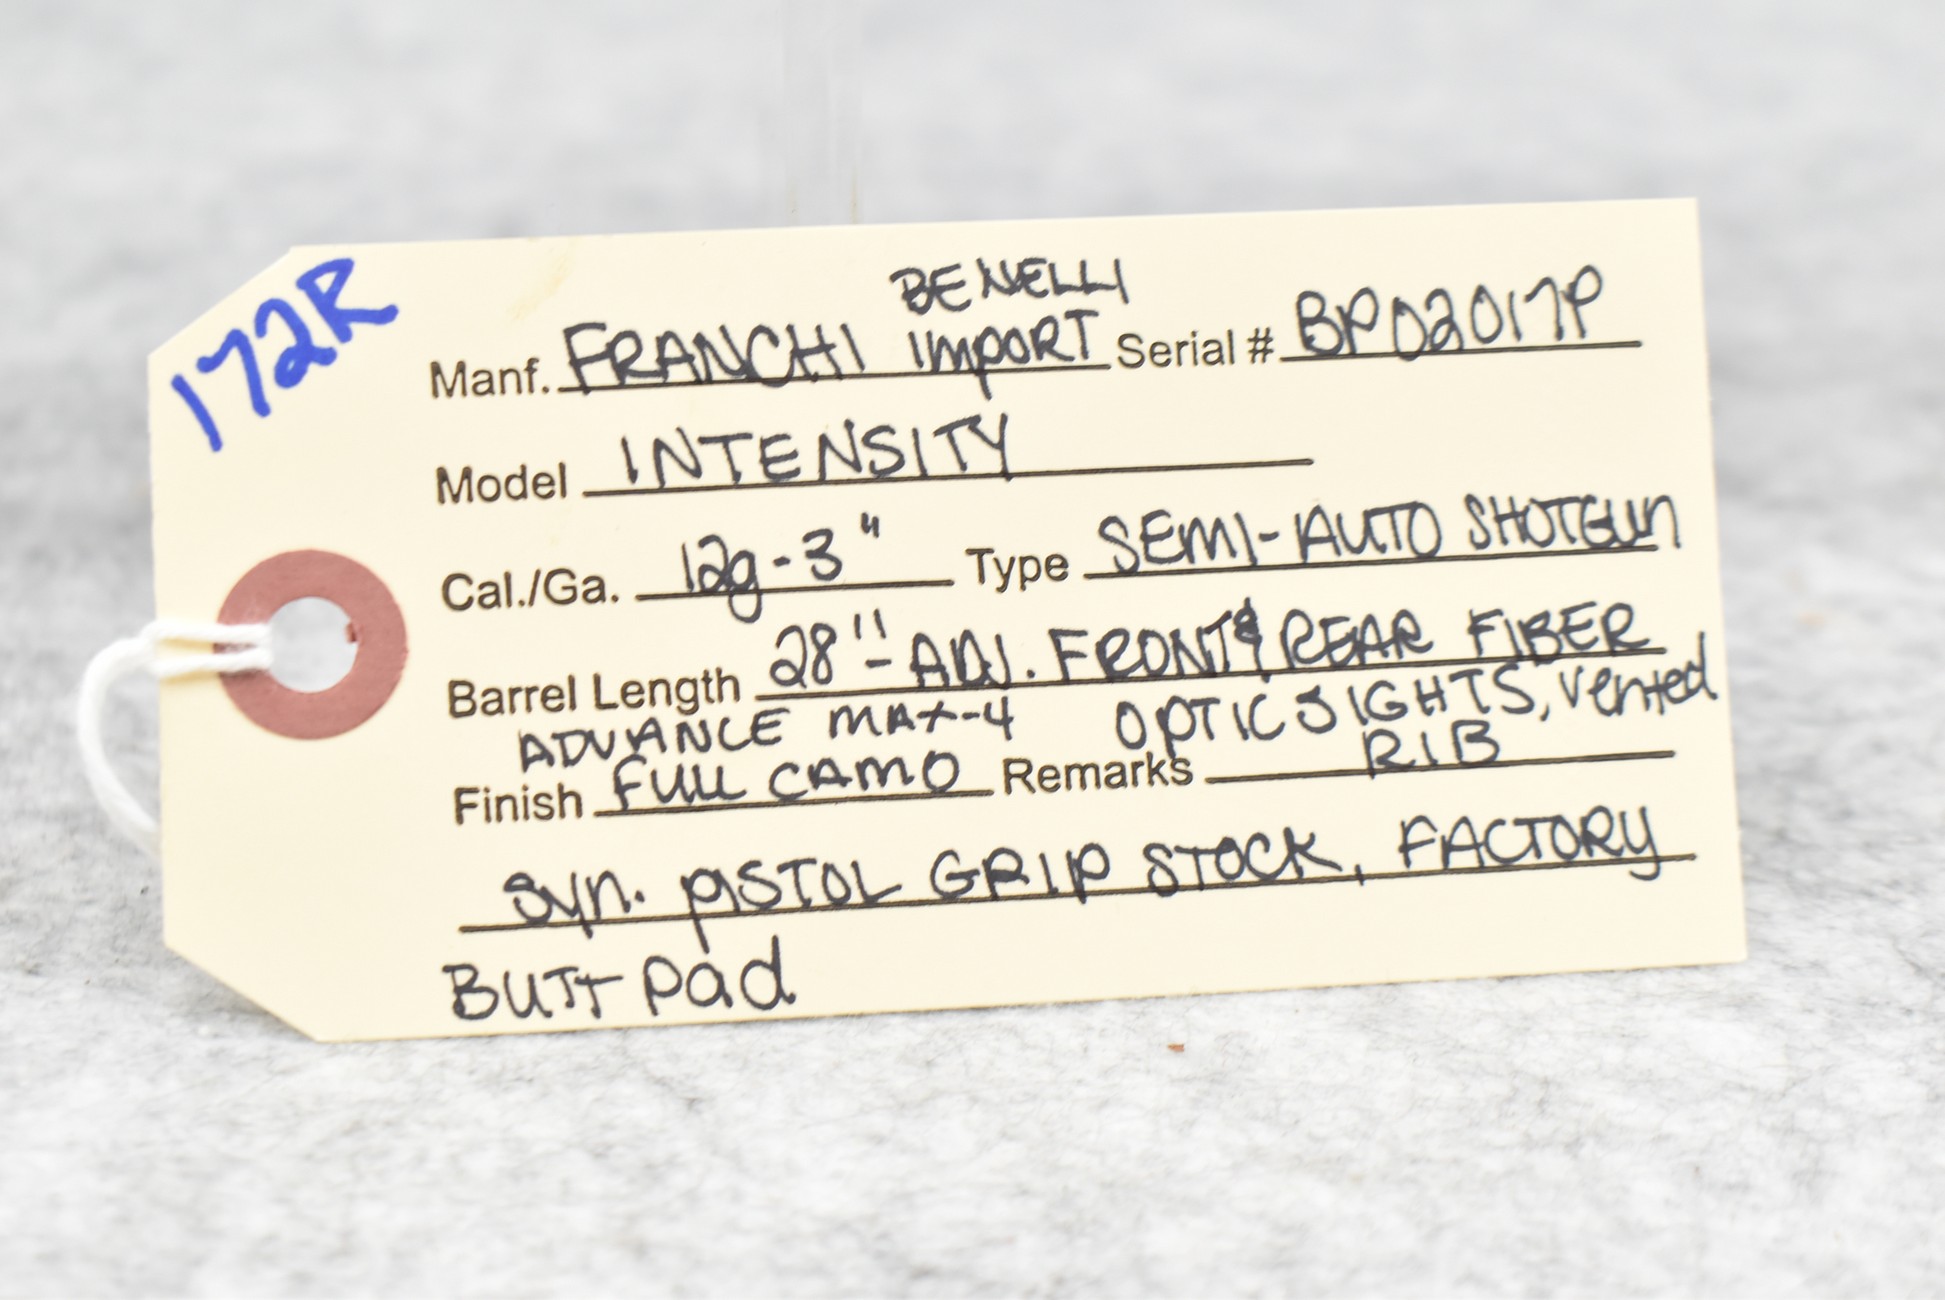 172R
BENELLI
Manf. FRANCHI IMPORT Serial # BP02017P
Model INTENSITY
Cal./Ga. 12g-3" Type SEMI-AUTO SHOTGUN
Barrel Length 28"- ADJ. FRONT & REAR FIBER
ADVANCE MAX-4 OPTIC SIGHTS, vented
Finish FULL CAMO Remarks RIB
Syn. PISTOL GRIP STOCK, FACTORY
BUTT Pad